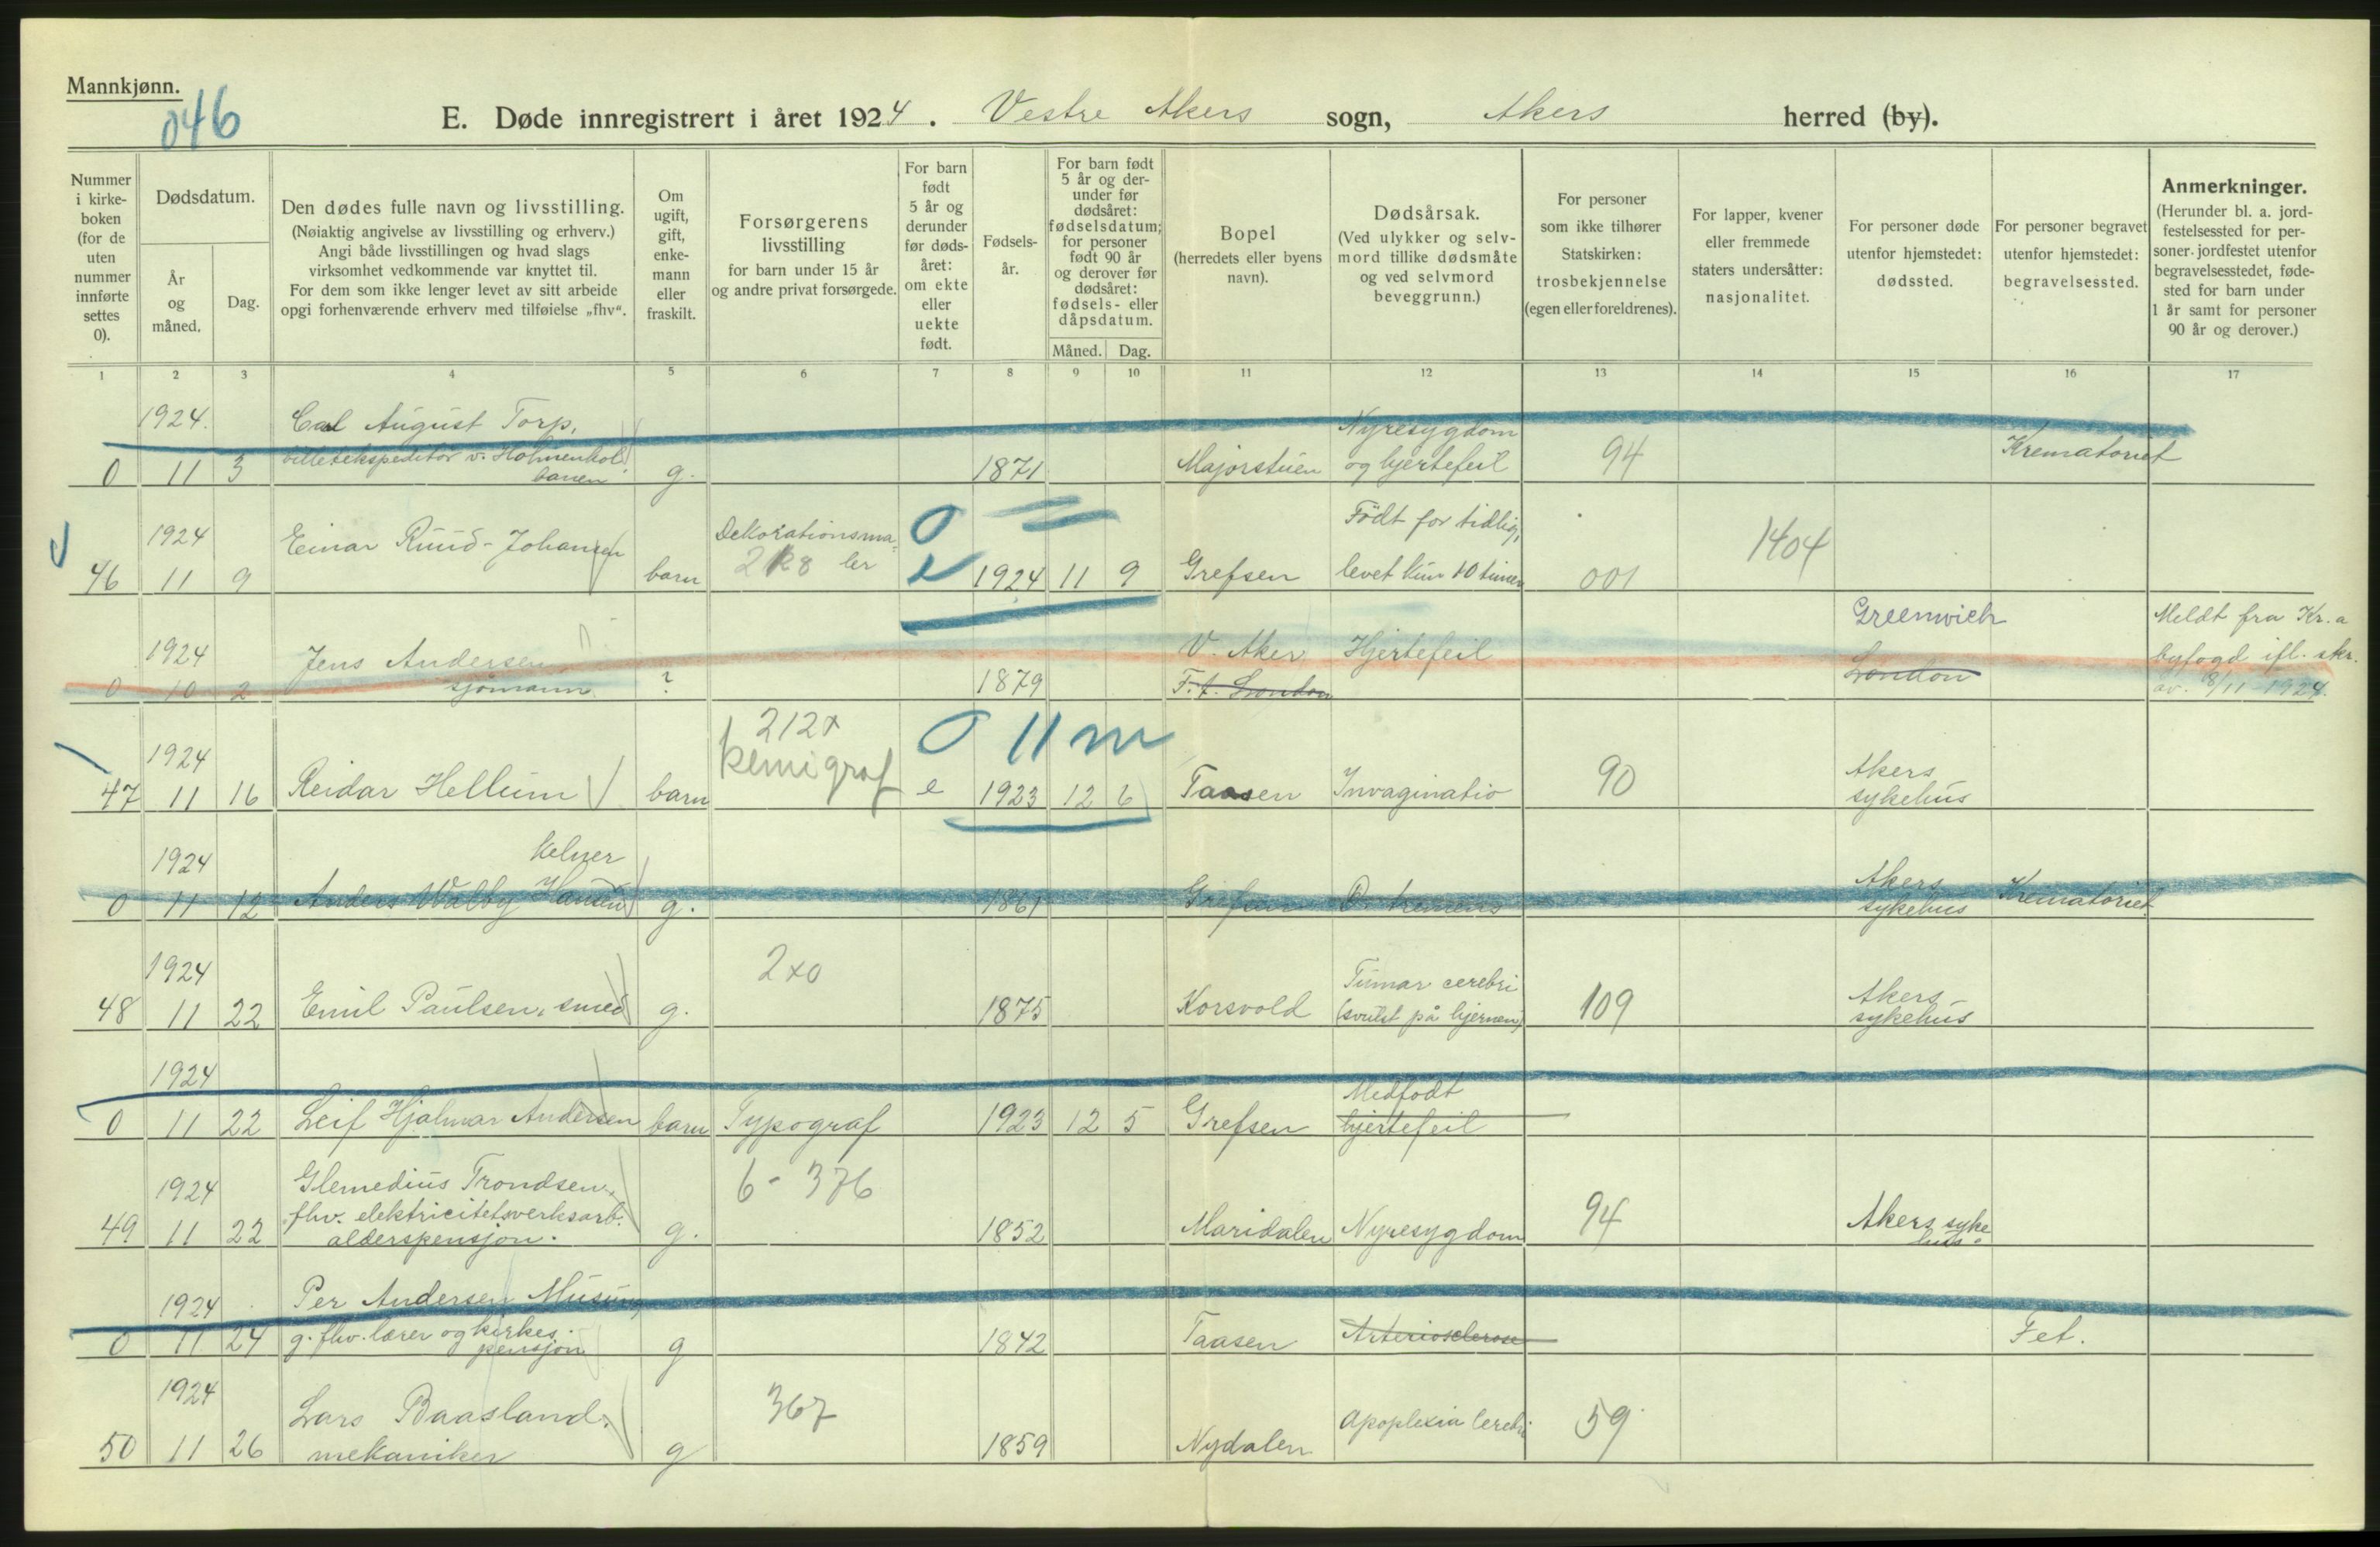 Mannkjønn.
046
E. Døde innregistrert i året 1924. Vestre Akers sogn, Akers herred (by).
Nummer i kirke-boken (for de uten nummer innførte settes 0).
Dødsdatum.
År og måned.
Dag.
Den dødes fulle navn og livsstilling.
(Nøiaktig angivelse av livsstilling og erhverv.)
Angi både livsstillingen og hvad slags
virksomhet vedkommende var knyttet til.
For dem som ikke lenger levet av sitt arbeide
opgi forhenværende erhverv med tilføielse „fhv“.
Om ugift, gift, enke-mann eller fraskilt.
Forsørgerens livsstilling
for barn under 15 år
og andre privat forsørgede.
For barn født 5 år og derunder før døds-året: om ekte eller uekte født.
Fødsels-år.
For barn født 5 år og der-under før dødsåret: fødselsdatum; for personer født 90 år og derover før dødsåret: fødsels- eller dåpsdatum.
Måned. Dag.
Bopel
(herredets eller byens navn).
Dødsårsak.
(Ved ulykker og selv-mord tillike dødsmåte og ved selvmord beveggrunn.)
For personer som ikke tilhører Statskirken: trosbekjennelse (egen eller foreldrenes).
For lapper, kvener eller fremmede staters undersåtter: nasjonalitet.
For personer døde utenfor hjemstedet: dødssted.
For personer begravet utenfor hjemstedet: begravelsessted.
Anmerkninger.
(Herunder bl. a. jord-festelsessted for per-soner jordfestet utenfor begravelsesstedet, føde-sted for barn under 1 år samt for personer 90 år og derover.)
1 2 3 4 5 6 7 8 9 10 11 12 13 14 15 16 17
1924. Carl August Torp, Nyresygdom
0 11 3 billetekspeditör v. Holmenkol. banen g. 1871 Majorstuen og hjertefeil 94 Krematoriet
1924 Einar Ruud-Johansen Dekorationsma- 0 Født for tidlig, 1404
46 11 9 barn ler 1924 11 9 Grefsen levet kun 10 timer 001
1924 Jens Andersen, V. Aker Hjertefeil Greenwich Meldt fra Kr.a
0 10 2 sjømann ? 1879 F. f. London London byfogd ifl. skr.
av. 8/11-1924.
212x 0 11 m
1924 kemigraf Akers
47 11 16 Reidar Hellum barn e 1923 12 6 Taasen Invaginatio 90 sykehus
1924 Kelner Akers
0 11 12 Anders Walby Hansen g. 1861 Grefsen D. tremens sykehus Krematoriet
1924 2x0 Tumor cerebri Akers
48 11 22 Emil Paulsen, smed g. 1875 Korsvold (svulst på hjernen) 109 sykehus
1924 Medfødt
0 11 22 Leif Hjalmar Andersen barn Typograf 1923 12 5 Grefsen hjertefeil
1924 Glemedius Trondsen, 6-376
fhv. elektricitetsverksarb.
49 11 22 alderspensjon. g. 1852 Maridalen Nyresygdom 94 Akers syke hus.
1924 Per Andersen Musum,
0 11 24 g. fhv. lærer og kirkes. pensjon g 1842 Taasen Arteriosclerose Fet.
1924 Lars Baasland, 367 Apoplexia cerebri 59
50 11 26 mekaniker g 1859 Nydalen